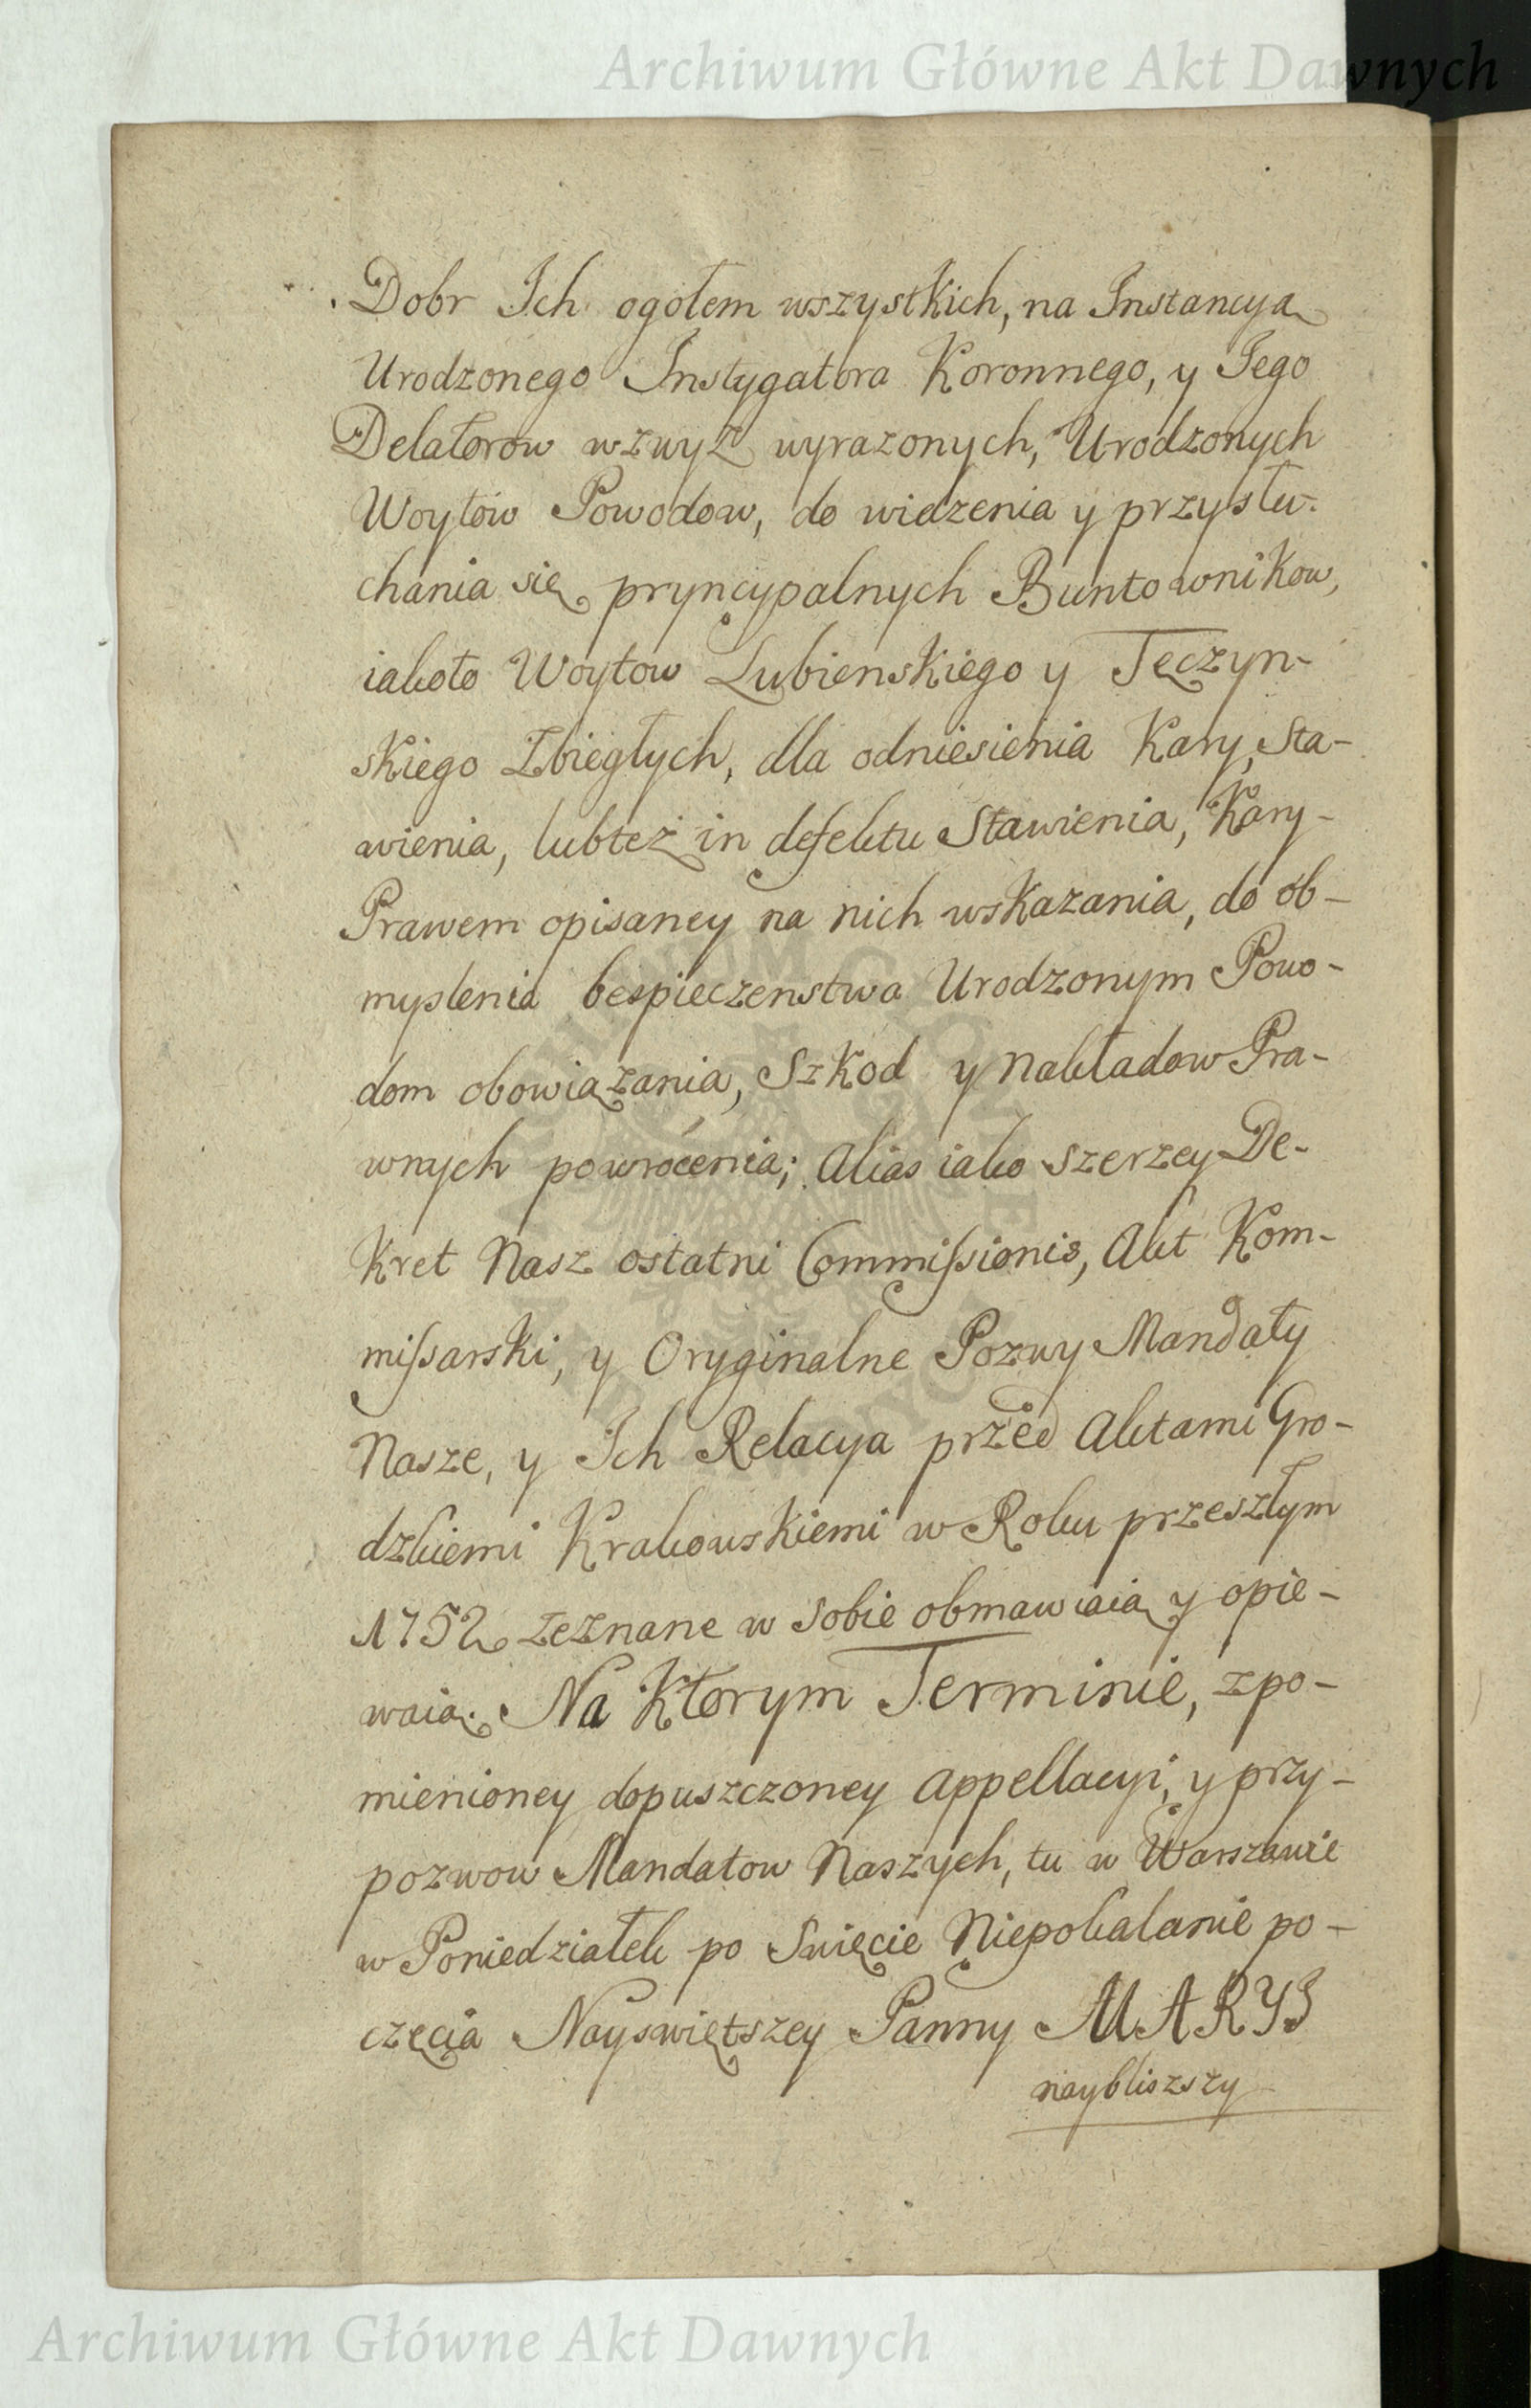 Archiwum Główne Akt Dawnych
Dobr Ich ogołem wszystkich, na Instancyą
Urodzonego Instygatora Koronnego, y Iego
Delatorow wzwyż wyrazonych, Urodzonych
Woytów Powodow, do widzenia y przysłu-
chania się pryncypalnych Buntownikow,
iakoto Woytow Lubienskiego y Tęczyn-
skiego Zbiegłych, dla odniesienia Kary, Sta-
wienia, lubteż in defektu Stawienia, Kary-
Prawem opisaney na nich wskazania, do ob-
myslenia bespieczenstwa Urodzonym Powo-
dom obowiązania, Szkod y Nakładow Pra-
wnych powrócenia; Alias iako szerzey De-
kret Nasz ostatni Commissionis, Akt Kom-
missarski, y Oryginalne Pozwy Mandaty
Nasze, y Ich Relacya przed Aktami Gro-
dzkiemi Krakowskiemi w Roku przeszłym
1752 zeznane w sobie obmawiaią y opie-
waią. Na Ktorym Terminie, zpo-
mienioney dopuszczoney Appellacyi, y przy-
pozwow Mandatow Naszych, tu w Warszawie
w Poniedziałek po Swięcie Niepokalanie po-
częcia Nayswiętszey Panny MARYI
naybliszszy
Archiwum Główne Akt Dawnych